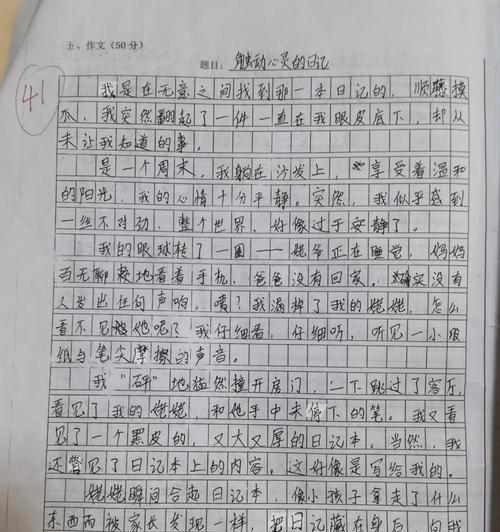 五、作文(50分)
题目：触动心灵的日记
41
我是在无意之间找到那一本日记的，顺藤摸
瓜，我突然翻起了一件一直在我眼皮底下，却从
未让我知道的事。
是一个周末，我躺在沙发上，享受着温和
的阳光，我的心情十分平静。突然，我似乎感到
一丝不对劲，整个世界，好像过于安静了。
我的眼球转了一圈——姥爷正在睡觉，妈妈
百无聊赖地看着手机，爸爸没有回家，确实没有
人发出任何声响，咦？我漏掉了我的姥姥，怎么
看不见她呢？我仔细看，仔细听，听见一小段
纸与笔尖摩擦的声音。
我“砰”地猛然撞开房门，一下跳过了客厅，
看见了我的姥姥，和他手中未停下的笔。我又看
见了一个黑皮的，又大又厚的日记本。当然，我
还瞥见了日记本上的内容。这好像是写给我的。
姥姥瞬间合起日记本，像小孩子拿走了什么
东西而被家长发现一样，把日记藏在身